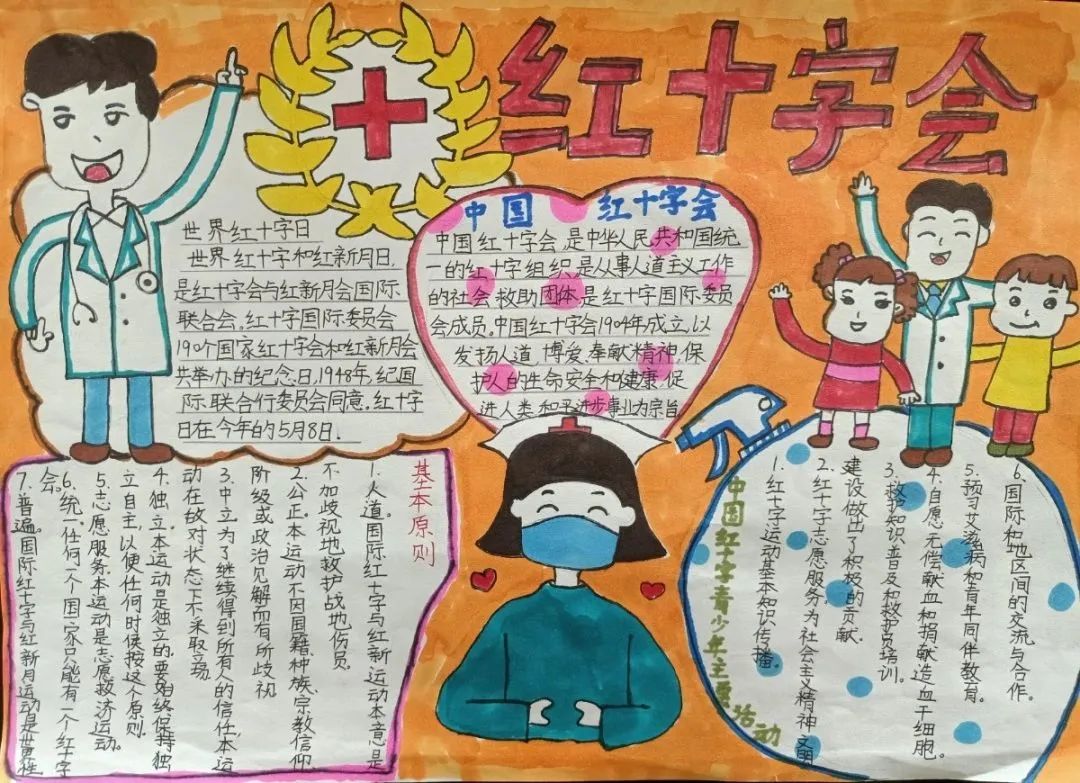 红十字会
世界红十字日
世界红十字和红新月日,
是红十字会与红新月会国际
联合会。红十字国际委员会
190个国家红十字会和红新月会
共举办的纪念日,1948年,纪国
际联合行委员会同意。红十字
日在今年的5月8日.
中国 红十字会
中国红十字会,是中华人民共和国统
一的红十字组织是从事人道主义工作
的社会救助团体是红十字国际委员
会成员。中国红十字会1904年成立,以
发扬人道 博爱、奉献精神,保
护人的生命安全和健康,促
进人类和平进步事业为宗旨
基本原则
1.人道。国际红十字与红新运动本意是
不加歧视地救护战地伤员
2.公正本运动不因国籍、种族、宗教信仰
阶级或政治见解而有所歧视
3.中立为了继续得到所有人的信任,本运
动在敌对状态下不采取立场
4.独立。本运动是独立的,要始终保持独
立自主,以便任何时候按这个原则。
5.志愿服务本运动是志愿救济运动。
6.统一。任何一个国家只能有一个红十字
会。
7.普遍。国际红十字与红新月运动是世界性
中国红十字青少年主要活动
1.红十字运动基本知识传播。
2.红十字志愿服务为社会主义精神文明
建设做出了积极的贡献
3.救护知识普及和救护员培训。
4.自愿无偿献血和捐献造血干细胞。
5.预习艾滋病和青年同伴教育。
6.国际和地区间的交流与合作。